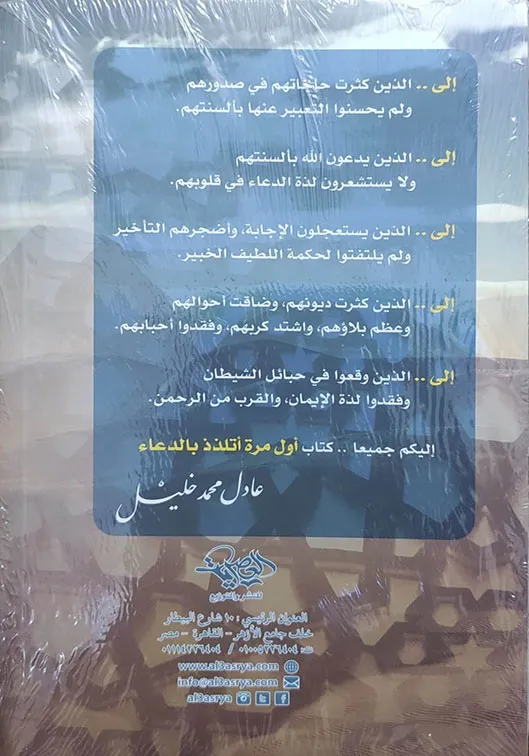 إلى .. الذين كثرت حاجاتهم في صدورهم
ولم يحسنوا التعبير عنها بألسنتهم.
إلى .. الذين يدعون الله بألسنتهم
ولا يستشعرون لذة الدعاء في قلوبهم.
إلى .. الذين يستعجلون الإجابة، وأضجرهم التأخير
ولم يلتفتوا لحكمة اللطيف الخبير.
إلى .. الذين كثرت ديونهم، وضاقت أحوالهم
وعظم بلاؤهم، واشتد كربهم، وفقدوا أحبابهم.
إلى .. الذين وقعوا في حبائل الشيطان
وفقدوا لذة الإيمان، والقرب من الرحمن.
إليكم جميعا .. كتاب أول مرة أتلذذ بالدعاء
عادل محمد خليل
العصرية
للنشر والتوزيع
العنوان الرئيسي: ١٠ شارع البيطار
خلف جامع الأزهر - القاهرة - مصر
www.al3asrya.com
info@al3asrya.com
al3asrya